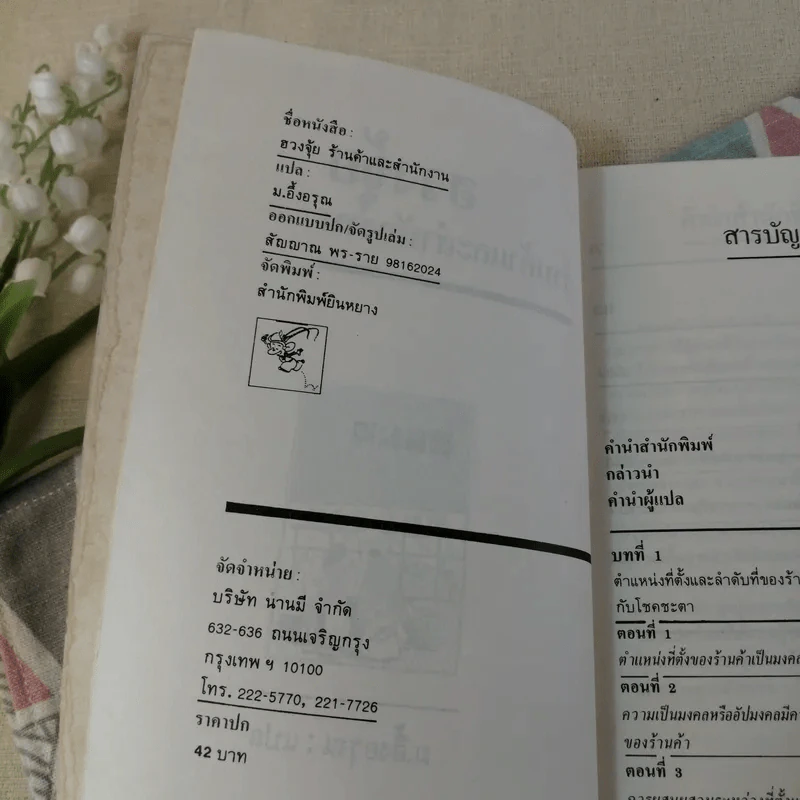 ชื่อหนังสือ :
ฮวงจุ้ย ร้านค้าและสำนักงาน
แปล :
ม.อึ้งอรุณ
ออกแบบปก/จัดรูปเล่ม :
สัญญาณ พร-ราย 98162024
จัดพิมพ์ :
สำนักพิมพ์ยินหยาง
จัดจำหน่าย :
บริษัท นานมี จำกัด
632-636 ถนนเจริญกรุง
กรุงเทพ ฯ 10100
โทร. 222-5770, 221-7726
ราคาปก
42 บาท
สารบัญ
คำนำสำนักพิมพ์
กล่าวนำ
คำนำผู้แปล
บทที่ 1
ตำแหน่งที่ตั้งและลำดับที่ของร้า
กับโชคชะตา
ตอนที่ 1
ตำแหน่งที่ตั้งของร้านค้าเป็นมงคล
ตอนที่ 2
ความเป็นมงคลหรืออัปมงคลมีค
ของร้านค้า
ตอนที่ 3